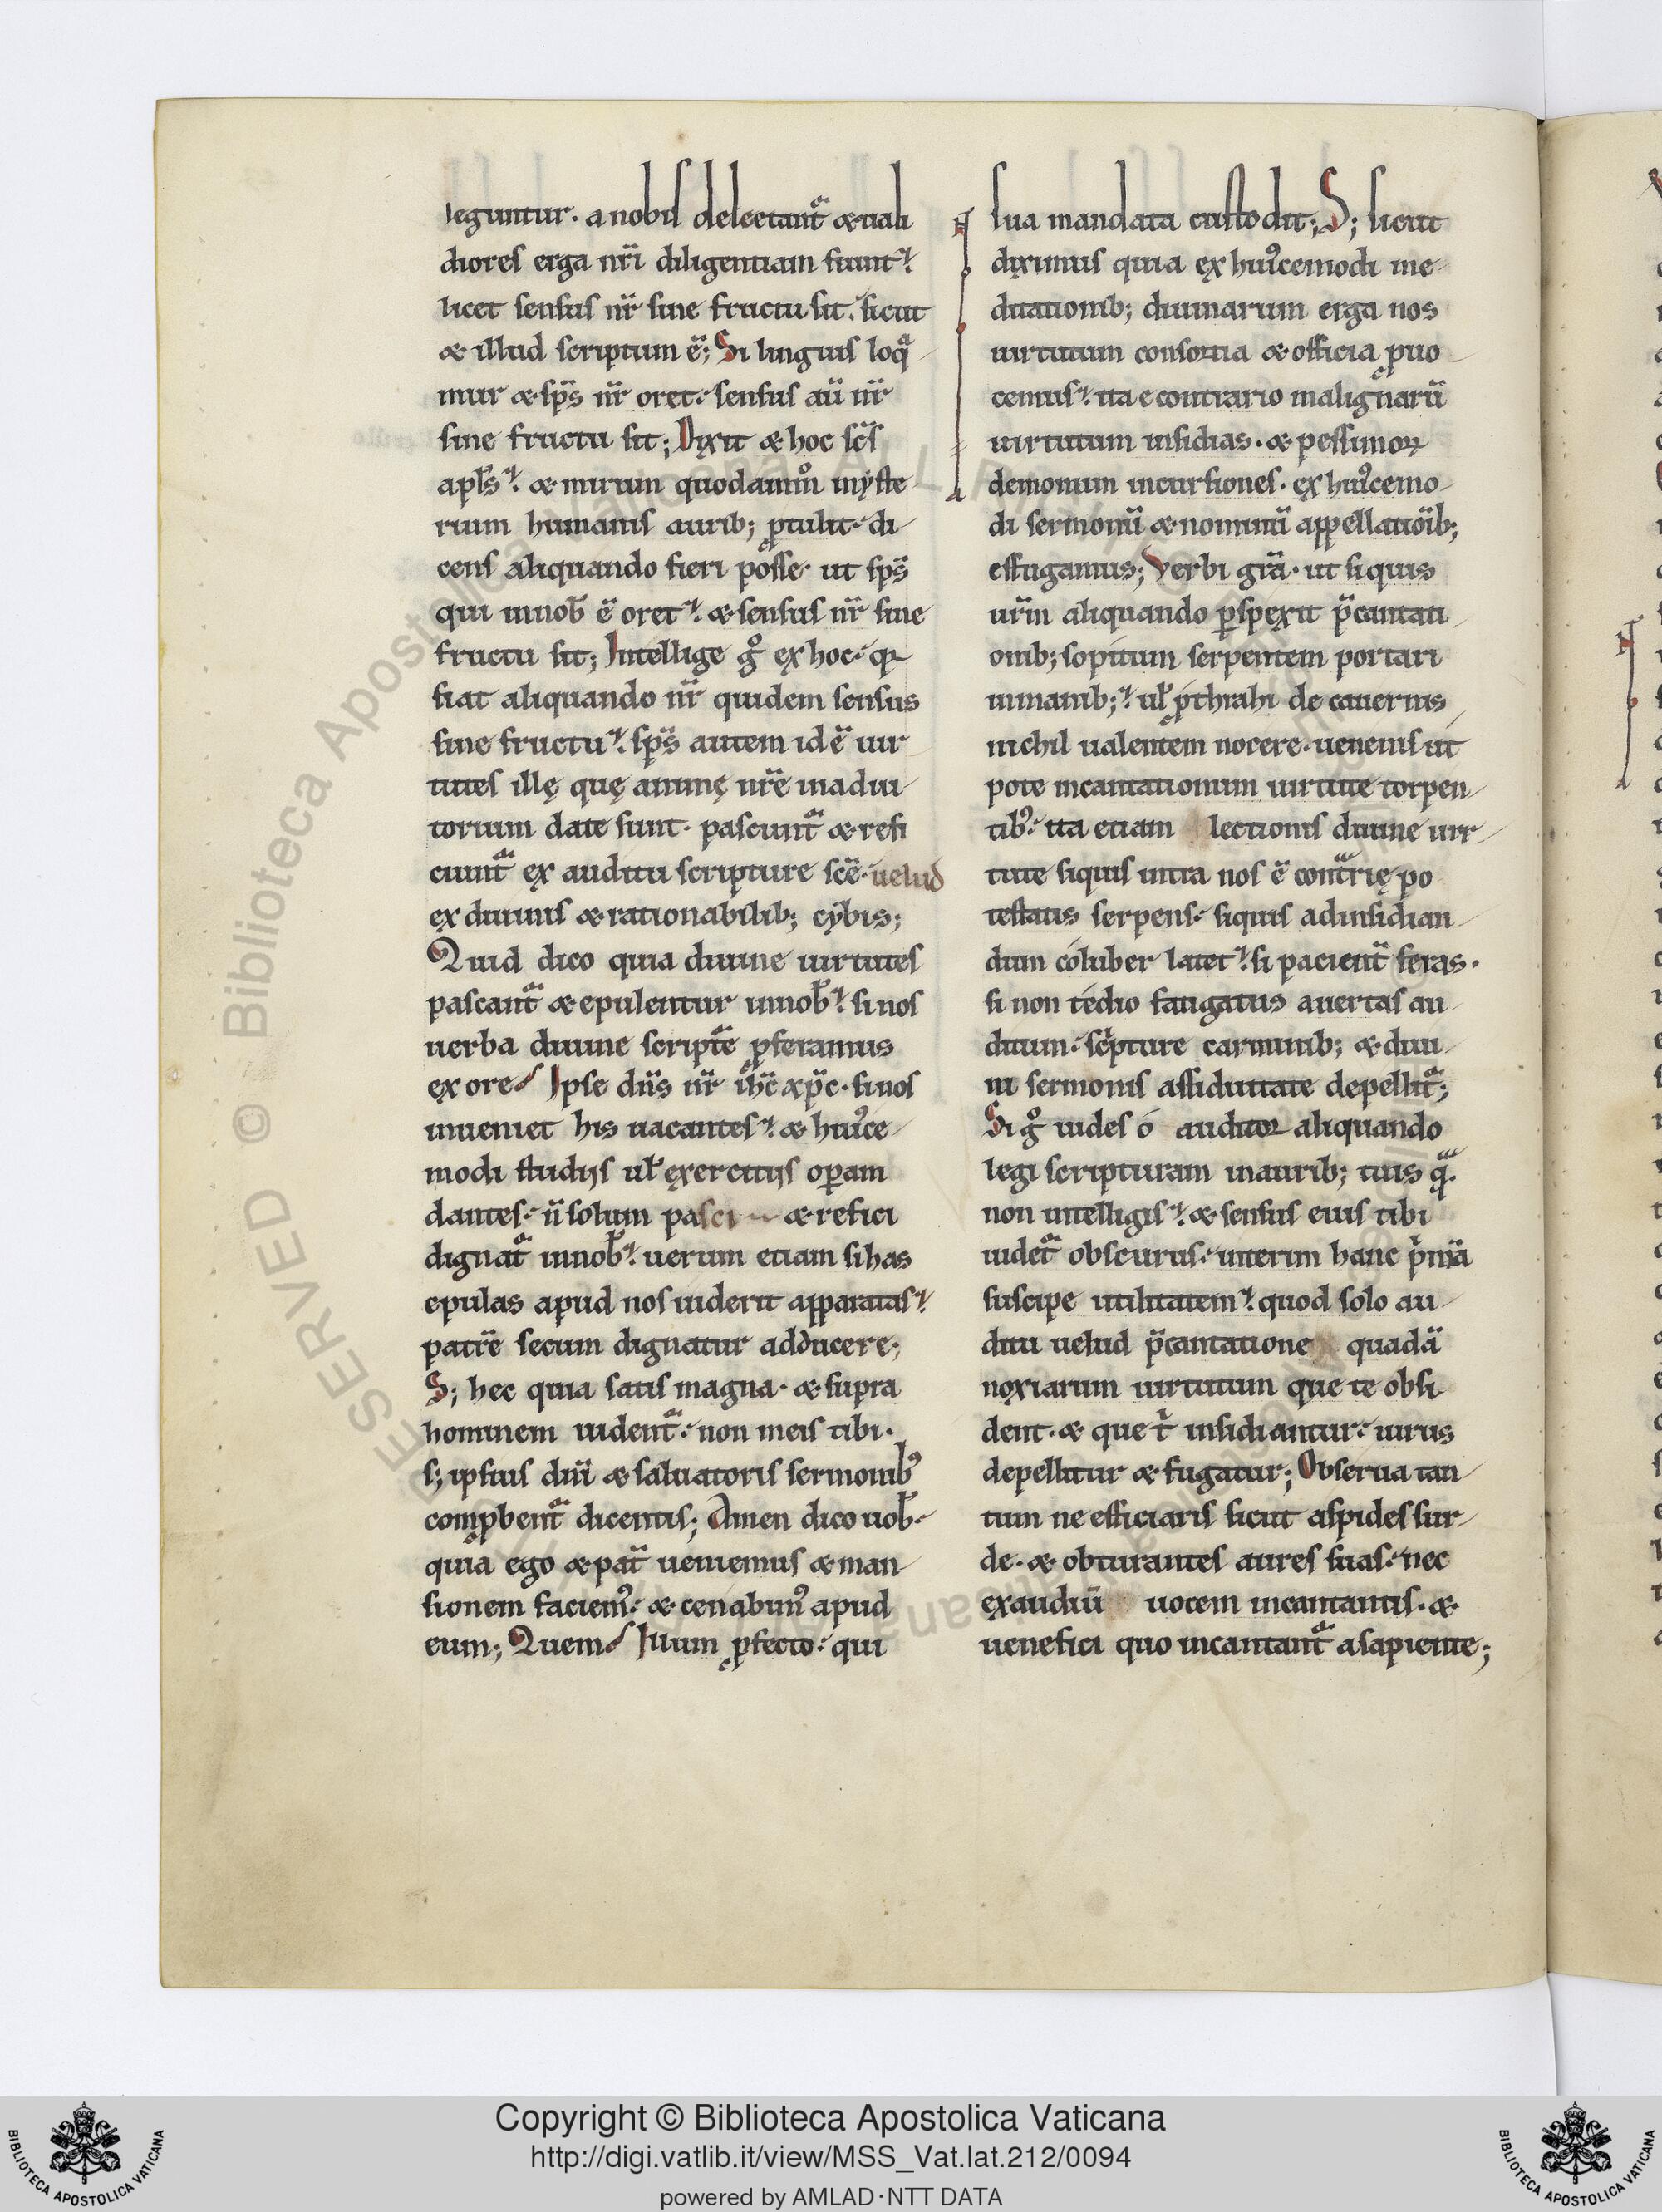 leguntur. a nobis delectant᷒ & uali
diores erga nr̄i diligentiam fiunt.
licet sensus nr̄ sine fructu sit. sicut
& illud scriptum ē; Si linguis loqͣ
mur & sp̄s nr̄ oret. sensus aū nr̄
sine fructu sit; Dixit & hoc sc̄s
apl̄s. & mirum quodammͦ myste
rium humanis aurib; ꝓtulit. di
cens aliquando fieri posse. ut sp̄s
qui innob̄ ē oret. & sensus nr̄ sine
fructu sit; Intellige gͦ ex hoc. qꝛ
fiat aliquando nr̄ quidem sensus
sine fructu. sp̄s autem id ē uir
tutes illę quę animę nr̄e inadiu
torium date sunt. pascunt᷒ & refi
ciunt᷒ ex auditu scripture sc̄e. uelud
ex diuinis & rationabilib; cybis;
Quid dico quia diuine uirtutes
pascant᷒ & epulentur innob̄. si nos
uerba diuine script᷒e ꝓferamus
ex ore. Ipse dn̄s nr̄ ih̄c xp̄c. si nos
inueniet his uacantes. & huꝰce
modi studijs ul̄ exercitijs oꝑam
dantes. n̄ solum pasci & refici
dignat᷒ innob̄. uerum etiam si has
epulas apud nos uiderit apparatas.
patr̄e secum dignatur adducere;
S; hec quia satis magna. & supra
hominem uident᷒. non meis tibi.
s; ipsius dn̄i & saluatoris sermonibꝰ
comꝓbent᷒ dicentis; Amen dico uob̄.
quia ego & pat᷒ ueniemus & man
sionem faciemꝰ. & cenabimꝰ apud
eum; Quem. Illum ꝓfecto. qui
sua mandata custodit; S; sicut
diximus quia ex huꝰcemodi me
ditationib; diuinarum erga nos
uirtutum consortia & officia ꝓuo
cemus. ita e contrario malignarū
uirtutum insidias. & pessimoꝝ
demonum incursiones. ex huꝰcemo
di sermonū & nominū appellatōib;
effugamus; Verbi gr̄a. ut siquis
ur̄m aliquando ꝑspexit p̄cantati
onib; sopitum serpentem portari
inmanib;. ul̄ ꝓthrahi de cauernis
nichil ualentem nocere. uenenis ut
pote incantationum uirtute torpen
tibꝰ. ita etiam lectionis diuine uir
tute siquis intra nos ē cont᷒rię po
testatis serpens. siquis adinsidian
dum coluber latet. si pacient᷒ feras.
si non tedio fatigatus auertas au
ditum. sc̓pture carminib; & diui
ni sermonis assiduitate depellit᷒;
Si gͦ uides o auditor aliquando
legi scripturam inaurib; tuis qͣ.
non intelligis. & sensus eius tibi
uidet᷒ obscurus. interim hanc p̓mā
suscipe utilitatem. quod solo au
ditu uelud p̄cantatione quadā
noxiarum uirtutum que te obsi
dent. & que t̓ insidiantur. uirus
depellitur & fugatur; Obserua tan
tum ne efficiaris sicut aspides sur
de. & obturantes aures suas. nec
exaudiū uocem incantantis. &
uenefici quo incantant᷒ asapiente;
RESERVED © Biblioteca Apostolica Vaticana
Copyright © Biblioteca Apostolica Vaticana
http://digi.vatlib.it/view/MSS_Vat.lat.212/0094
powered by AMLAD·NTT DATA
BIBLIOTECA APOSTOLICA VATICANA
BIBLIOTECA APOSTOLICA VATICANA